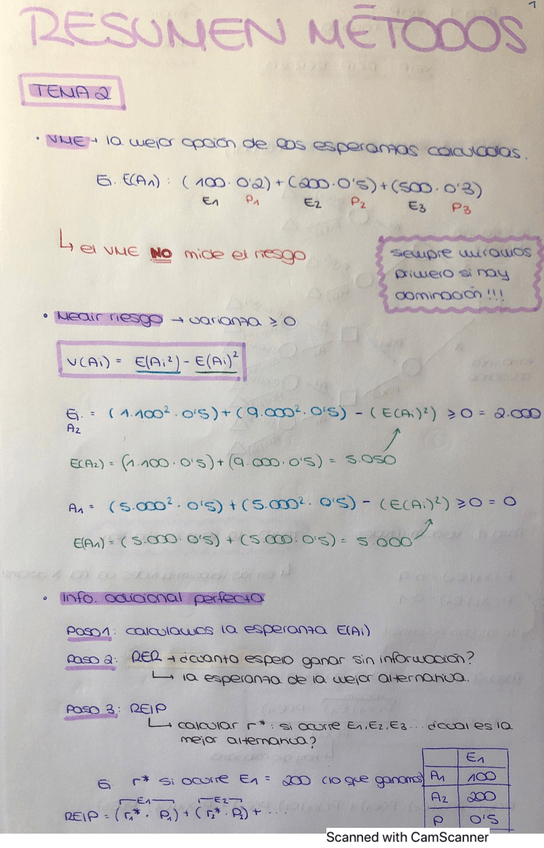 1
RESUMEN MÉTODOS
TEMA 2
• VME → la mejor opción de las esperanzas calculadas.
Ej. E(A1): (100 · 0'2) + (200 · 0'5) + (500 · 0'3)
E1 P1 E2 P2 E3 P3
↳ el VME NO mide el riesgo
siempre miramos
primero si hay
dominación!!!
• Medir riesgo → varianza ≥ 0
V(Ai) = E(Ai²) - E(Ai)²
Ej. = (1.100² · 0'5) + (9.000² · 0'5) - (E(Ai)²) ≥ 0 = 2.000
A2
E(A2) = (1.100 · 0'5) + (9.000 · 0'5) = 5.050
A1 = (5.000² · 0'5) + (5.000² · 0'5) - (E(Ai)²) ≥ 0 = 0
E(A1) = (5.000 · 0'5) + (5.000 · 0'5) = 5.000
• Info. adicional perfecta
Paso 1: calculamos la esperanza E(Ai)
Paso 2: RER → ¿cuanto espero ganar sin información?
↳ la esperanza de la mejor alternativa.
Paso 3: REIP
↳ calcular r*: si ocurre E1, E2, E3... ¿cual es la
mejor alternativa?
Ej r* si ocurre E1 = 200 (lo que ganamos)
E1 E2
REIP = (r1* · P1) + (r2* · P2) + ...
E1
A1 100
A2 200
P 0'5
Scanned with CamScanner